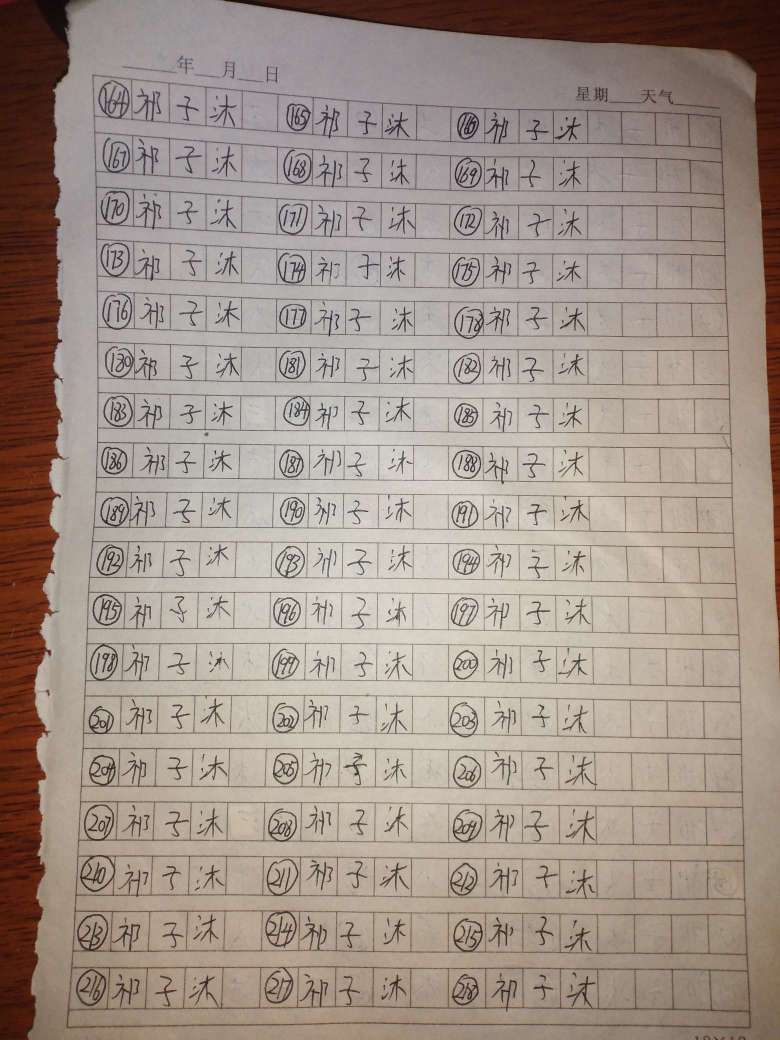 年 月 日
星期 天气
164 祁子沐 165 祁子沐 166 祁子沐
167 祁子沐 168 祁子沐 169 祁子沐
170 祁子沐 171 祁子沐 172 祁子沐
173 祁子沐 174 祁子沐 175 祁子沐
176 祁子沐 177 祁子沐 178 祁子沐
180 祁子沐 181 祁子沐 182 祁子沐
183 祁子沐 184 祁子沐 185 祁子沐
186 祁子沐 187 祁子沐 188 祁子沐
189 祁子沐 190 祁子沐 191 祁子沐
192 祁子沐 193 祁子沐 194 祁子沐
195 祁子沐 196 祁子沐 197 祁子沐
198 祁子沐 199 祁子沐 200 祁子沐
201 祁子沐 202 祁子沐 203 祁子沐
204 祁子沐 205 祁子沐 206 祁子沐
207 祁子沐 208 祁子沐 209 祁子沐
210 祁子沐 211 祁子沐 212 祁子沐
213 祁子沐 214 祁子沐 215 祁子沐
216 祁子沐 217 祁子沐 218 祁子沐